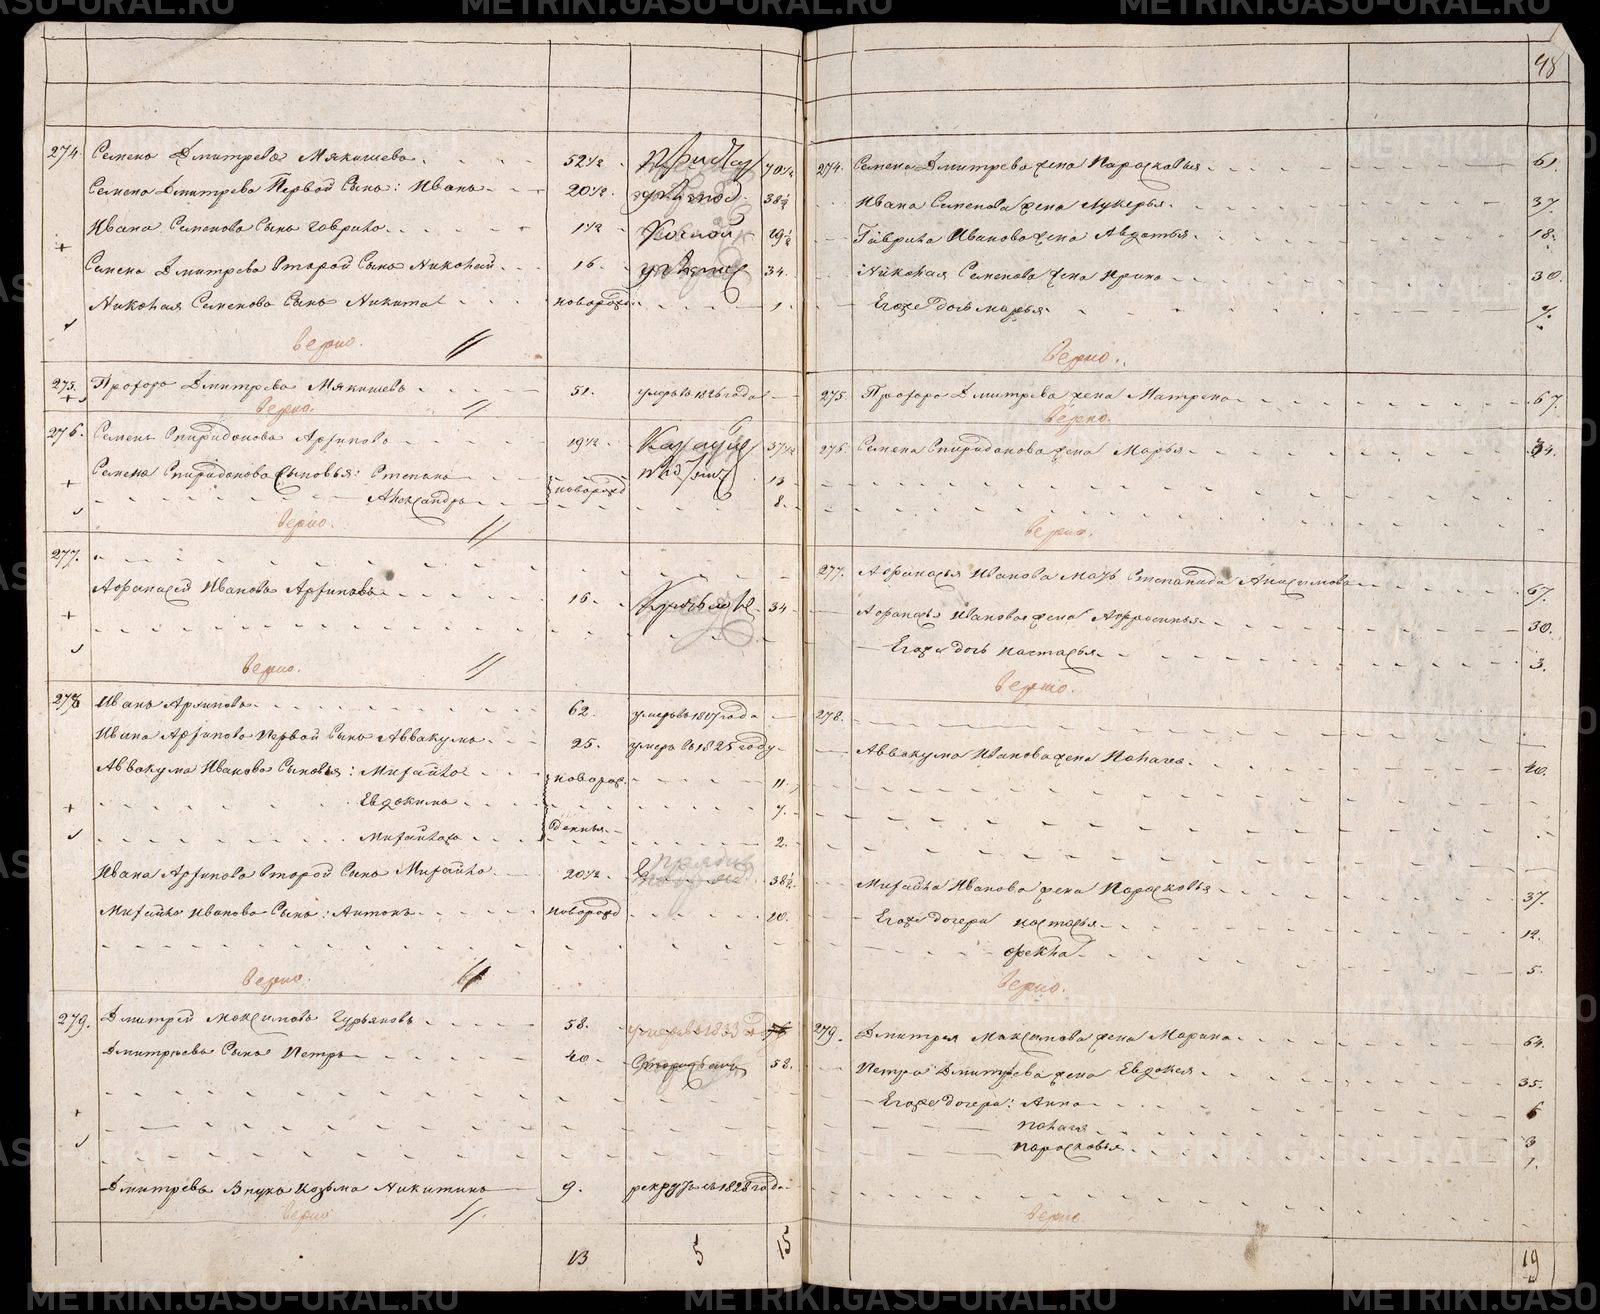 METRIKI.GASU-URAL.RU
48
274. Семенъ Дмитревъ Мякишевъ 52½ 70½
Семена Дмитрева Первой Сынъ: Иванъ 20½ 38½
Ивана Семенова Сынъ Гаврило 1½ 19½
Семена Дмитрева Второй Сынъ Николай 16. 34.
Николая Семенова Сынъ Никита новорожд. 1
Верно.
275. Прохоръ Дмитревъ Мякишевъ 51. умеръ въ 1826 году
Верно.
276. Семенъ Спиридоновъ Архиповъ 19½ 37½
Семена Спиридонова Сыновья: Степанъ новорожд 13
Александръ 8.
Верно.
277.
Афанасей Ивановъ Архиповъ 16. 34
Верно.
278 Иванъ Архиповъ 62. умеръ въ 1817 года
Ивана Архипова Первой Сынъ Аввакумъ 25. умеръ въ 1825 году
Аввакума Иванова Сыновья: Михайло новорож 11.
Евдокимъ 7.
Михайло денныя 2.
Ивана Архипова Второй Сынъ Михайло 20½ 38½
Михайла Иванова Сынъ: Антонъ новорожд 10.
Верно.
279. Дмитрей Максимовъ Гурьяновъ 58. умеръ въ 1833
Дмитревъ Сынъ Петръ 40 58.
Дмитревъ Внукъ Козьма Никитинъ 9. рекрут въ 1828 годе
Верно
13 5 15
274. Семена Дмитрева жена Парасковья 61.
Ивана Семенова жена Лукерья 37.
Гаврила Иванова жена Авдотья 18.
Николая Семенова жена Ирина 30.
Егоже дочь марья 7.
Верно.
275. Прохора Дмитрева жена Матрена 67.
Верно.
276. Семена Спиридонова жена Марья 34.
Верно.
277. Афанасья Иванова Мать Степанида Анисимова 67.
Афанасья Иванова жена Афросинья 30.
Егоже дочь настасья 3.
Верно.
278.
Аввакума Иванова жена Палагея 40.
Михайла Иванова жена Парасковья 37.
Егоже дочери настасья 12.
фекла 5.
Верно.
279. Дмитрея Максимова жена Марина 64.
Петра Дмитрева жена Евдокея 35.
Егоже дочери: Анна 6
палагея 3
парасковья 1.
Верно
19